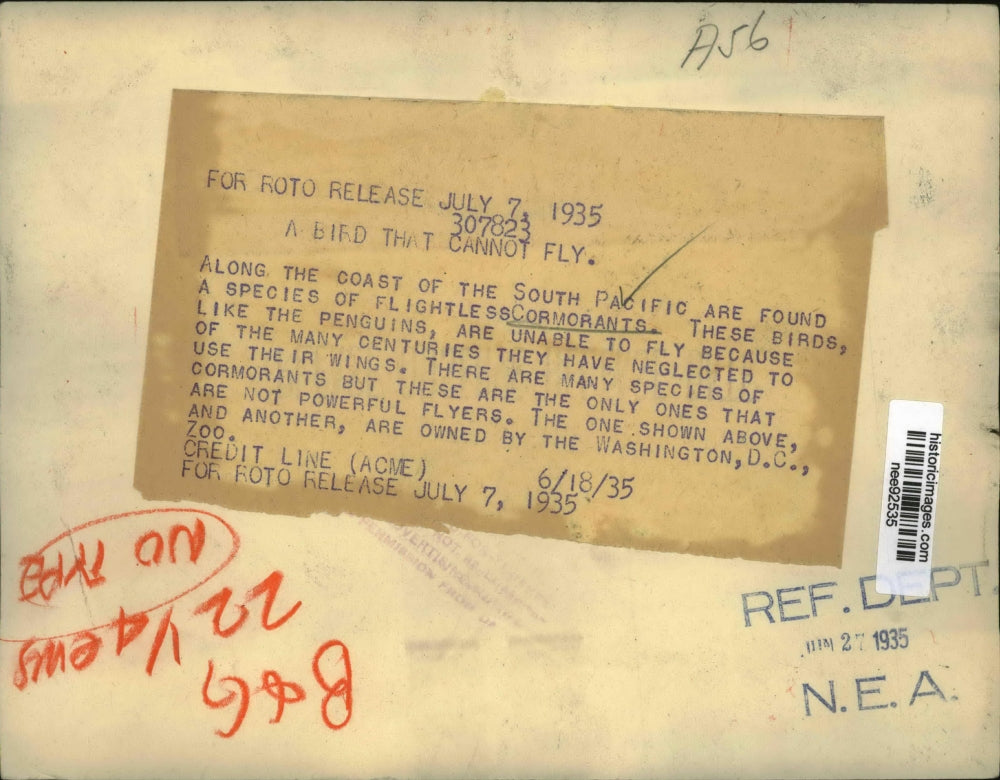 A56
FOR ROTO RELEASE JULY 7, 1935
307823
A BIRD THAT CANNOT FLY.
ALONG THE COAST OF THE SOUTH PACIFIC ARE FOUND
A SPECIES OF FLIGHTLESS CORMORANTS. THESE BIRDS,
LIKE THE PENGUINS, ARE UNABLE TO FLY BECAUSE
OF THE MANY CENTURIES THEY HAVE NEGLECTED TO
USE THEIR WINGS. THERE ARE MANY SPECIES OF
CORMORANTS BUT THESE ARE THE ONLY ONES THAT
ARE NOT POWERFUL FLYERS. THE ONE SHOWN ABOVE,
AND ANOTHER, ARE OWNED BY THE WASHINGTON, D.C.,
ZOO.
CREDIT LINE (ACME) 6/18/35
FOR ROTO RELEASE JULY 7, 1935
historicimages.com
nee92535
REF. DEPT.
JUN 27 1935
N.E.A.
B+G
22
NO TYPE
PERMISSION FROM